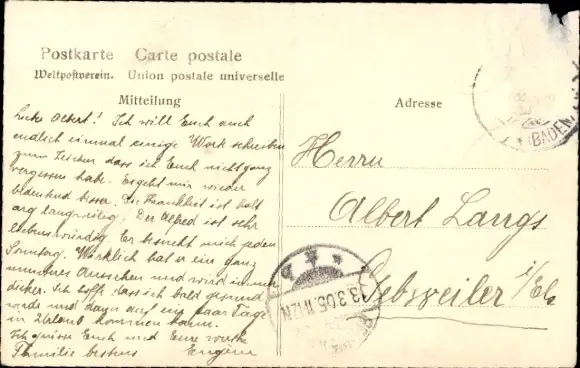 Postkarte Carte postale
Weltpostverein. Union postale universelle
Mitteilung
Adresse
Liebe Albert! Ich will Euch auch
endlich einmal einige Worte schreiben
zum Zeichen dass ich Euch nicht ganz
vergessen habe. Es geht mir wieder
bedeutend besser. Die Krankheit ist halt
arg langweilig. Der Alfred ist sehr
liebenswürdig. Er besucht mich jeden
Sonntag. Wirklich hat er ein ganz
munteres Aussehen und wird immer
dicker. Ich hoffe dass ich bald gesund
werde und dann auf ein paar Tage
in Urlaub kommen kann.
Ich grüsse Euch und Eure werte
Familie bestens Eugène
Herrn
Albert Langs
Gebweiler i/Els
13.3.05.11-12V.
BADEN